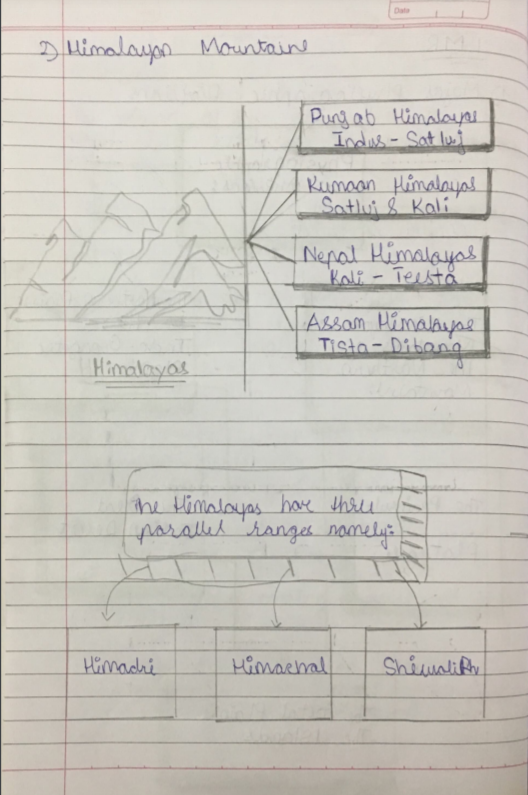 Date
2) Himalayan Mountains
Punjab Himalayas
Indus - Satluj
Kumaan Himalayas
Satluj & Kali
Nepal Himalayas
Kali - Teesta
Assam Himalayas
Tista - Dibang
Himalayas
The Himalayas have three
parallel ranges namely:-
Himadri
Himachal
Shiwalik